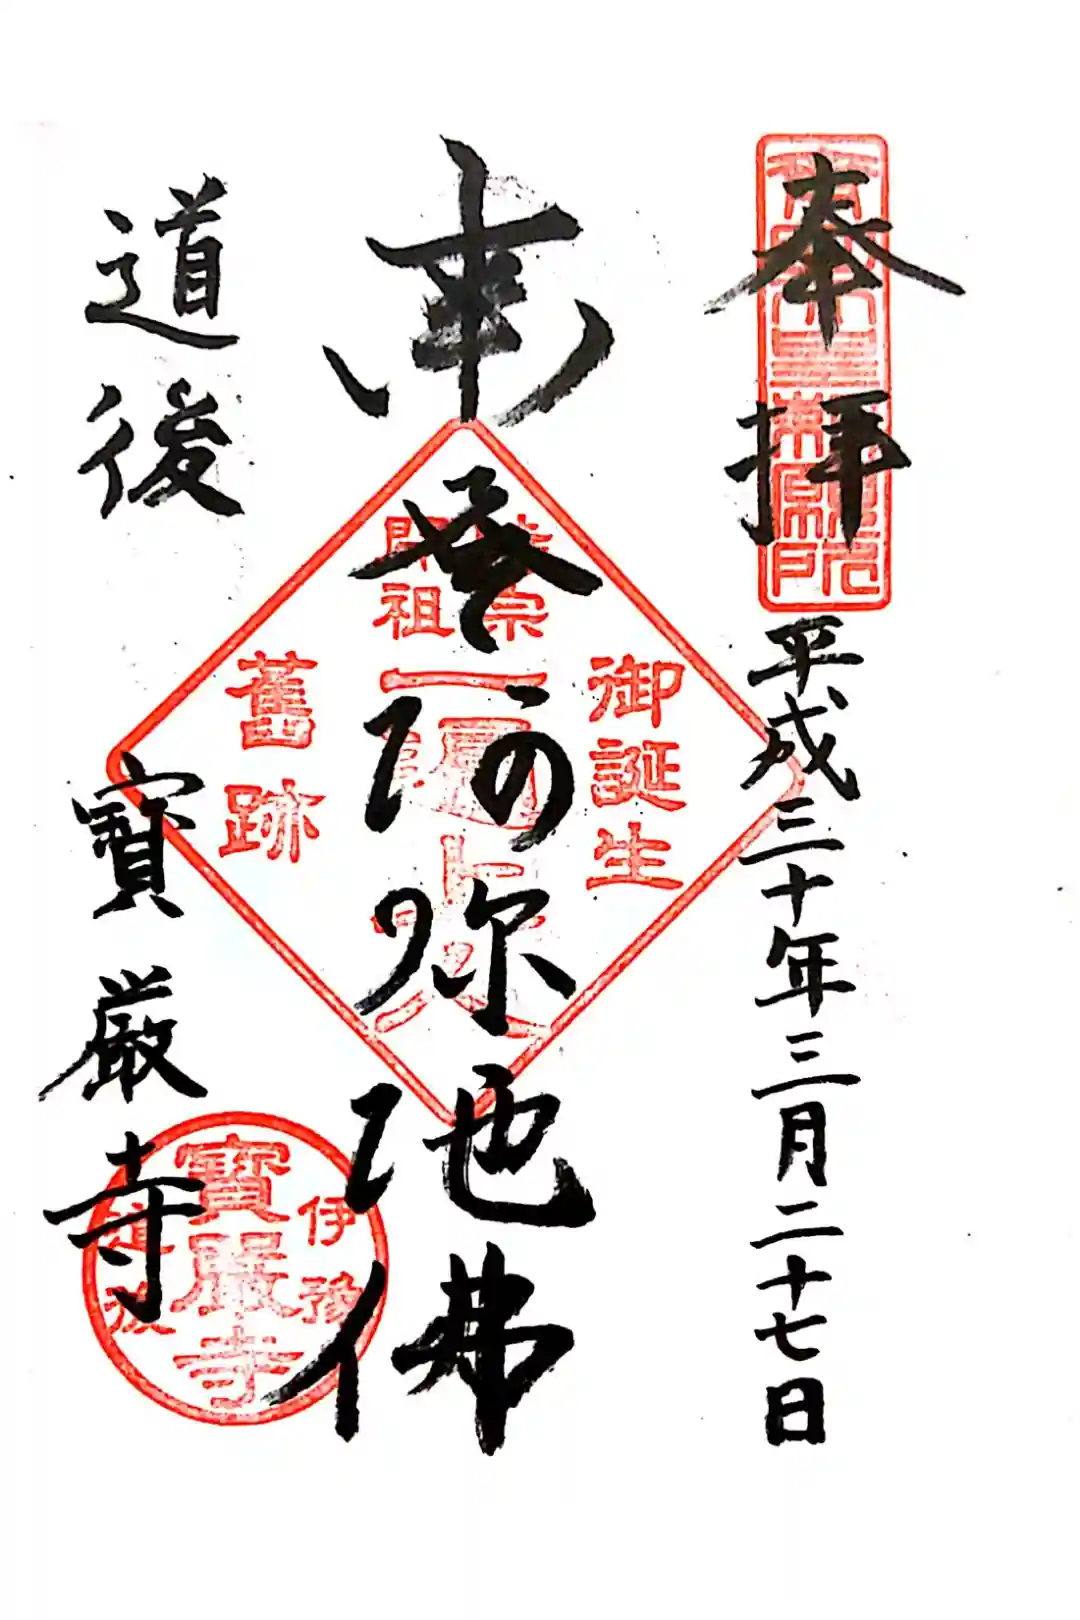 奉拝
平成三十年三月二十七日
天皇勅願所
南無阿弥陀佛
御誕生
時宗
開祖
一遍上人
舊跡
道後
寶厳寺
伊豫
寶嚴寺
道後